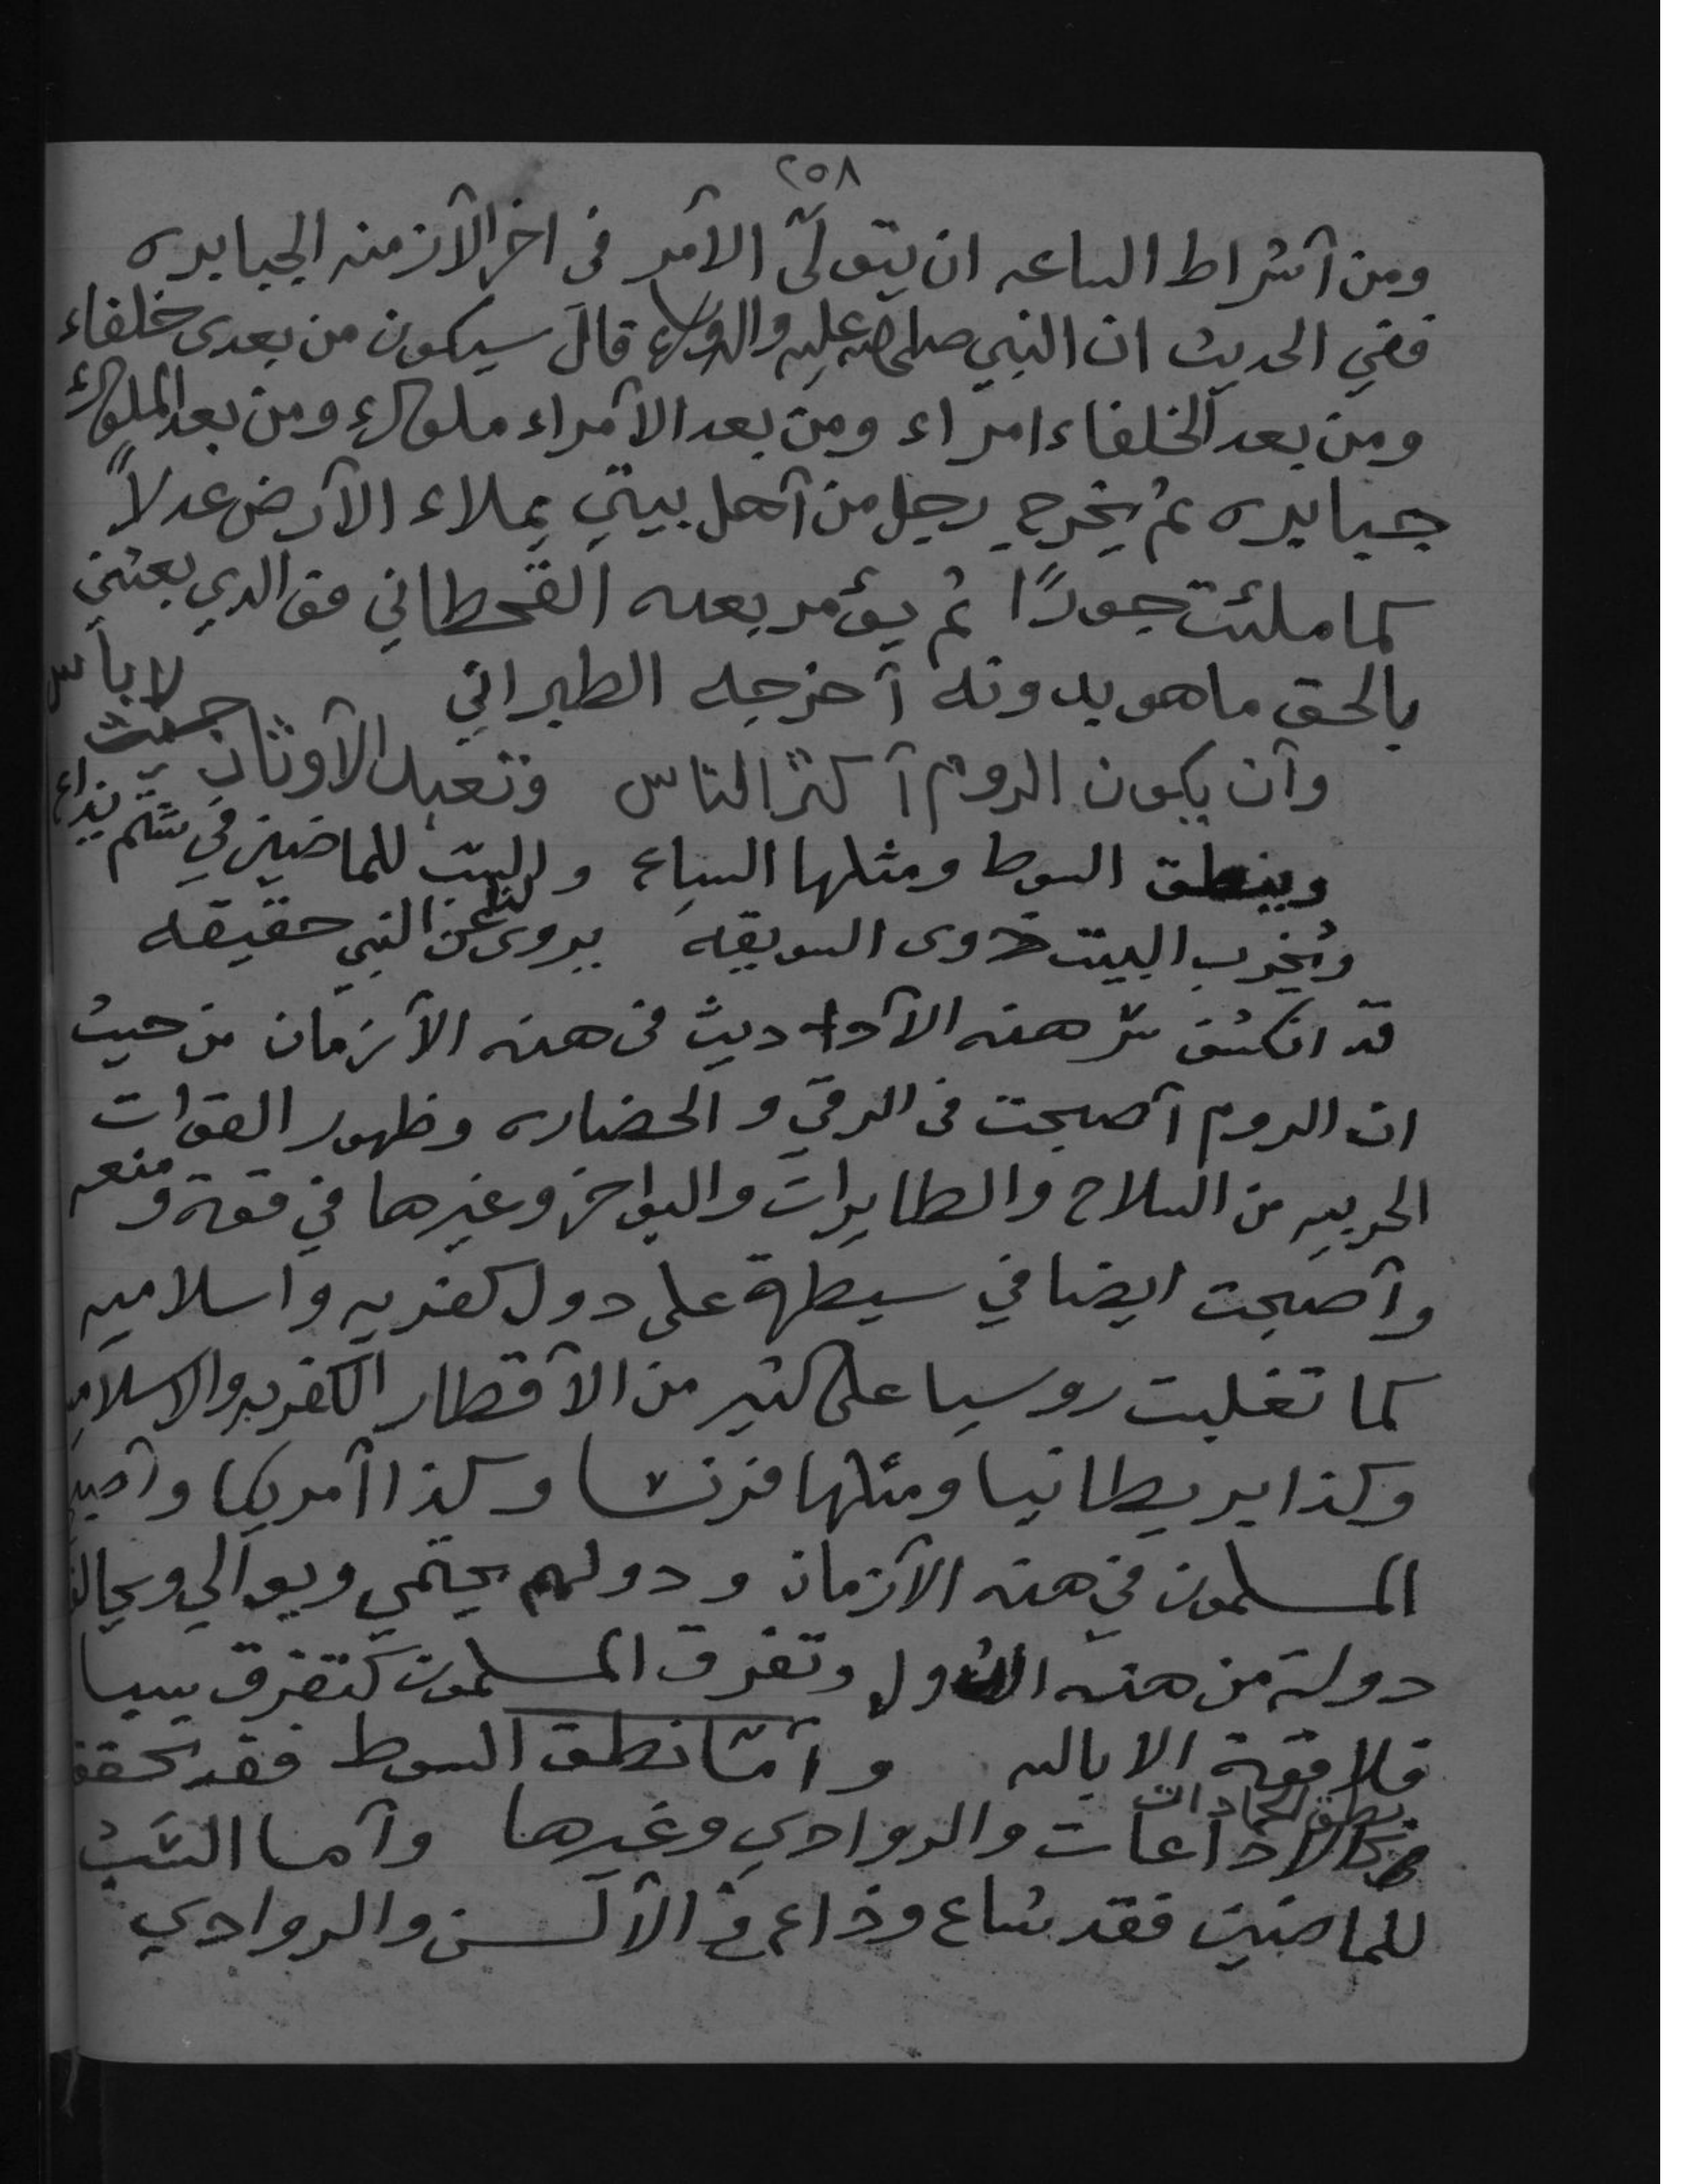 ٢٥٨
ومن أشراط الساعه ان يتولّى الأمر في اخر الأزمنه الجبابره
ففي الحديث ان النبي صلى الله عليه واله وسلم قال سيكون من بعدى خلفاء
ومن بعد الخلفاء امراء ومن بعد الأمراء ملوك ومن بعد الملوك
جبابره ثم يخرج رجل من أهل بيتي يملاء الأرض عدلاً
كما ملئت جورًا ثم يؤمر بعده القحطاني فو الذي بعثني
بالحق ما هو بدونه أخرجه الطبراني
وأن يكون الروم أكثر الناس وتعبد الأوثان لا بأس
وينطق السوط ومثلها السباع والسب للماضين في شتم
ويخرب البيت ذوى السويقه يروى لنا عن النبي حقيقه
قد انكشف سر هذه الأحاديث في هذه الأزمان من حيث
ان الروم أصبحت في الرقي والحضاره وظهور القوات
الحربيه من السلاح والطايرات والبواخر وغيرها في قوة ومنعه
وأصبحت ايضا في سيطرة على دول كفريه واسلاميه
كما تغلبت روسيا على كثير من الأقطار الكفريه والاسلاميه
وكذا بريطانيا ومثلها فرنسا وكذا أمريكا وأصبح
المسلمون في هذه الأزمان ودولهم يحتمي ويوالي ويحالف
دولة من هذه الدول وتفرق المسلمون كتفرق سبا
فلا قوة الا بالله وأمّا نطق السوط فقد تحقق
نطق الجمادات كالاذاعات والروادي وغيرها وأما السب
للماضين فقد شاع وذاع في الألسن والروادي